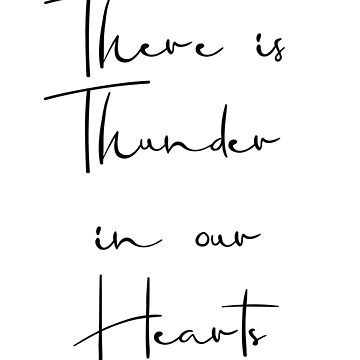 There is
Thunder
in our
Hearts